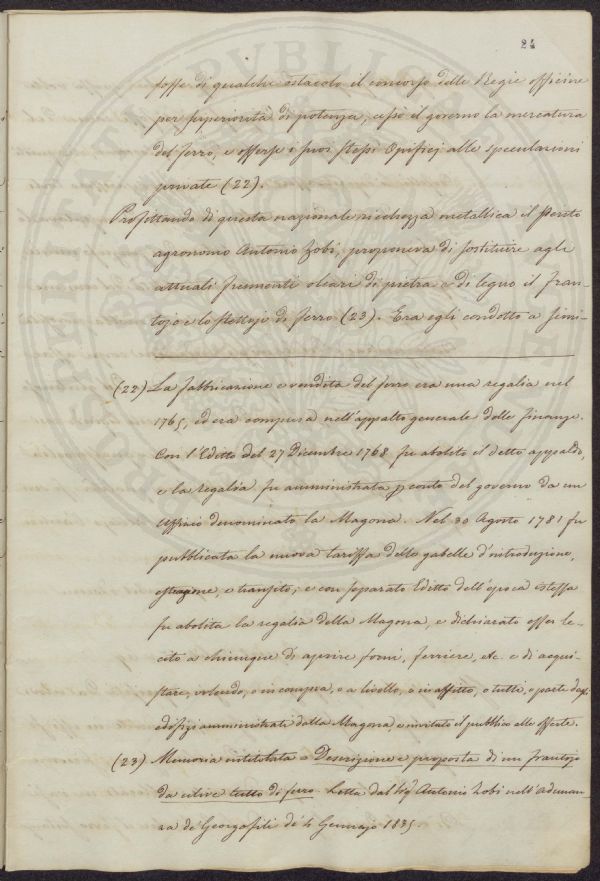 24
fosse di qualche ostacolo il concorso delle Regie officine
per superiorità di potenza, cessò il governo la mercatura
del ferro, e offerse i suoi stessi Opificj alle speculazioni
private (22).
Profittando di questa nazionale ricchezza metallica il Perito
agronomo Antonio Zobi, proponeva di sostituire agli
attuali strumenti oleari di pietra e di legno il fran-
tojo e lo strettojo di ferro (23). Era egli condotto a simi-
(22) La fabbricazione e vendita del ferro era una regalia nel
1765, ed era compresa nell'appalto generale delle finanze.
Con l'Editto del 27 Dicembre 1768 fu abolito il detto appalto,
e la regalia fu amministrata p conto del governo da un
Uffizio denominato la Magona. Nel 30 Agosto 1781 fu
pubblicata la nuova tariffa delle gabelle d'introduzione,
estrazione, e transito; e con separato Editto dell'epoca istessa
fu abolita la regalia della Magona, e dichiarato esser le-
cito a chiunque di aprire forni, ferriere, etc. e di acqui-
stare, volendo, o in compra, o a livello, o in affitto, o tutti, o parte degli
edifizj amministrati dalla Magona, e invitato il pubblico alle offerte.
(23) Memoria intitolata = Descrizione e proposta di un frantojo
da ulive tutto di ferro. Letta dal Sigr Antonio Zobi nell'adunan-
za de' Georgofili de' 4 Gennajo 1835.
PROSPERITATI PUBLICAE